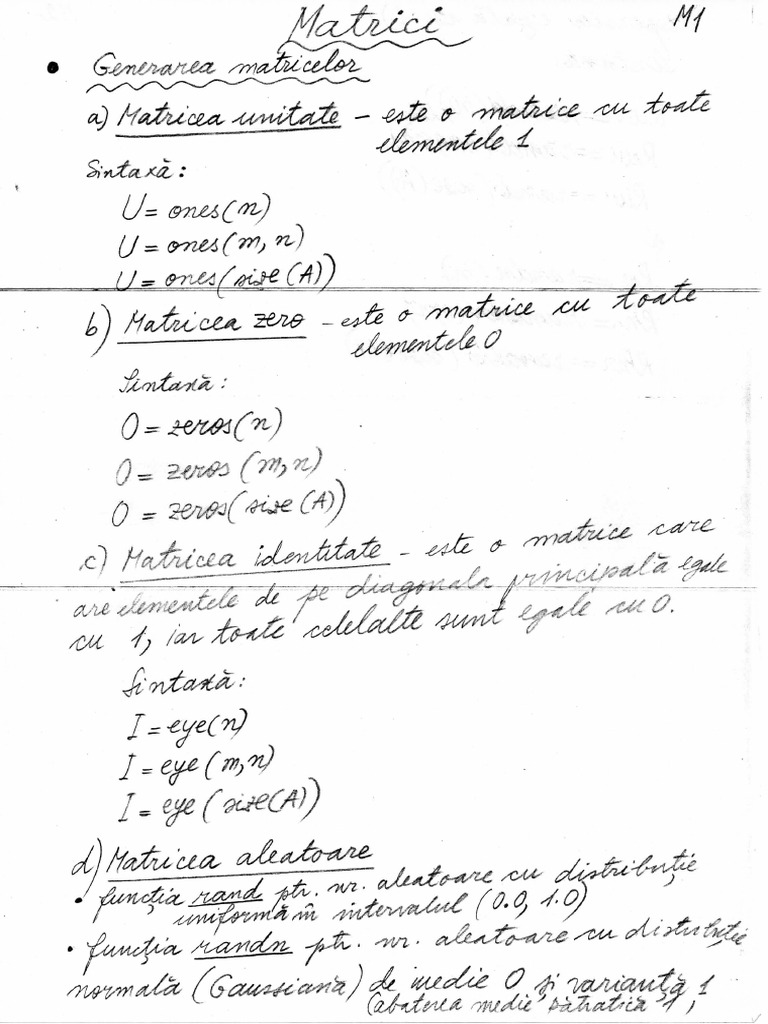 Matrici
M1
• Generarea matricelor
a) Matricea unitate - este o matrice cu toate
elementele 1
Sintaxă:
U = ones(n)
U = ones(m, n)
U = ones(size(A))
b) Matricea zero - este o matrice cu toate
elementele 0
Sintaxă:
O = zeros(n)
O = zeros (m,n)
O = zeros(size(A))
c) Matricea identitate - este o matrice care
are elementele de pe diagonala principală egale
cu 1, iar toate celelalte sunt egale cu 0.
Sintaxă:
I = eye(n)
I = eye (m,n)
I = eye (size(A))
d) Matricea aleatoare
• funcția rand ptr. nr. aleatoare cu distribuție
uniformă în intervalul (0.0, 1.0)
• funcția randn ptr. nr. aleatoare cu distribuție
normală (Gaussiană) de medie 0 și varianță 1
(abaterea medie pătratică 1,